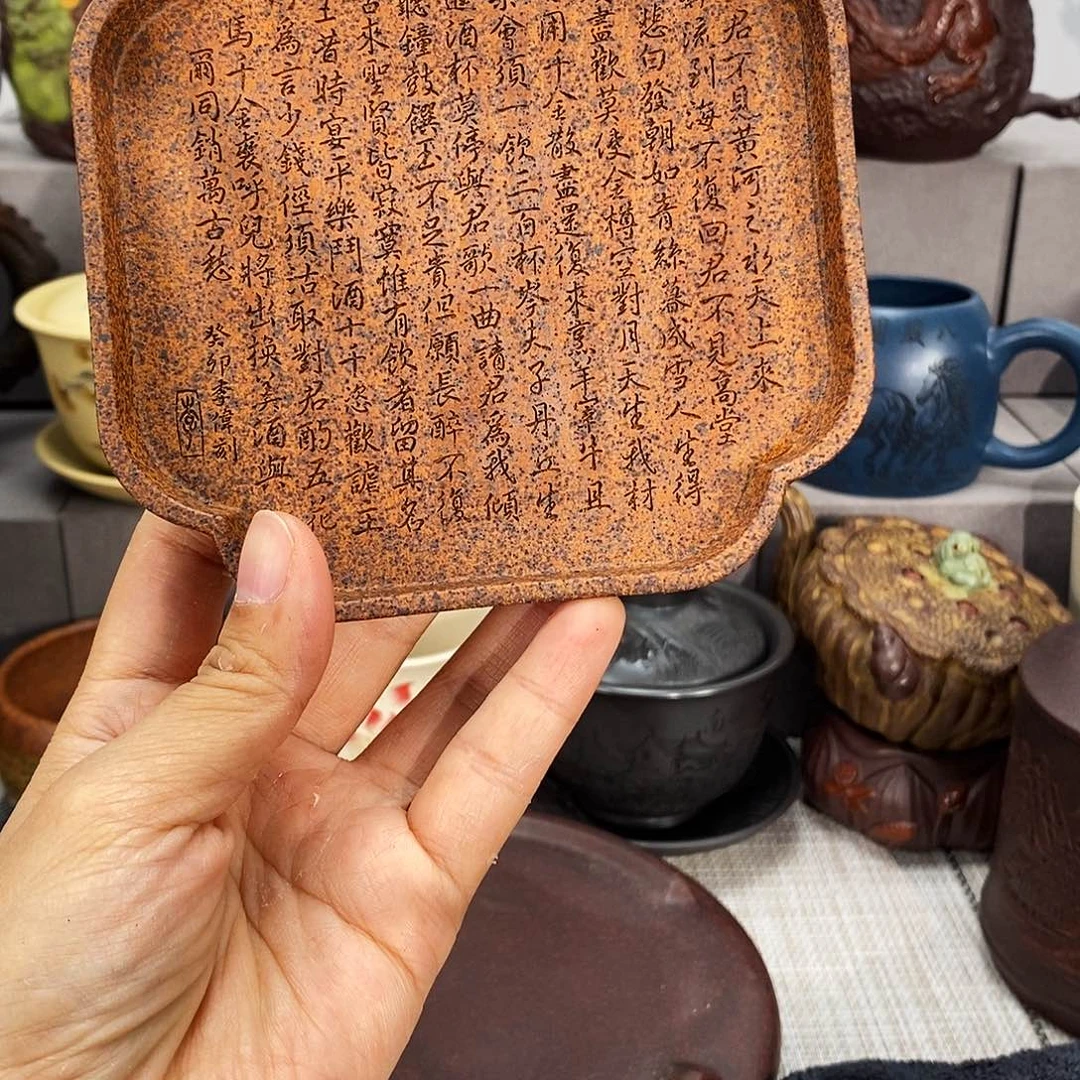 君不見黃河之水天上來
流到海不復回君不見高堂
悲白發朝如青絲暮成雪人生得
盡歡莫使金樽空對月天生我材
用千金散盡還復來烹羊宰牛且
會須一飲三百杯岑夫子丹丘生
進酒杯莫停與君歌一曲請君為我傾
聽鐘鼓饌玉不足貴但願長醉不復
古來聖賢皆寂寞惟有飲者留其名
王昔時宴平樂鬥酒十千恣歡謔主
為言少錢徑須沽取對君酌五花
馬千金裘呼兒將出換美酒與
爾同銷萬古愁
癸卯李偉刻